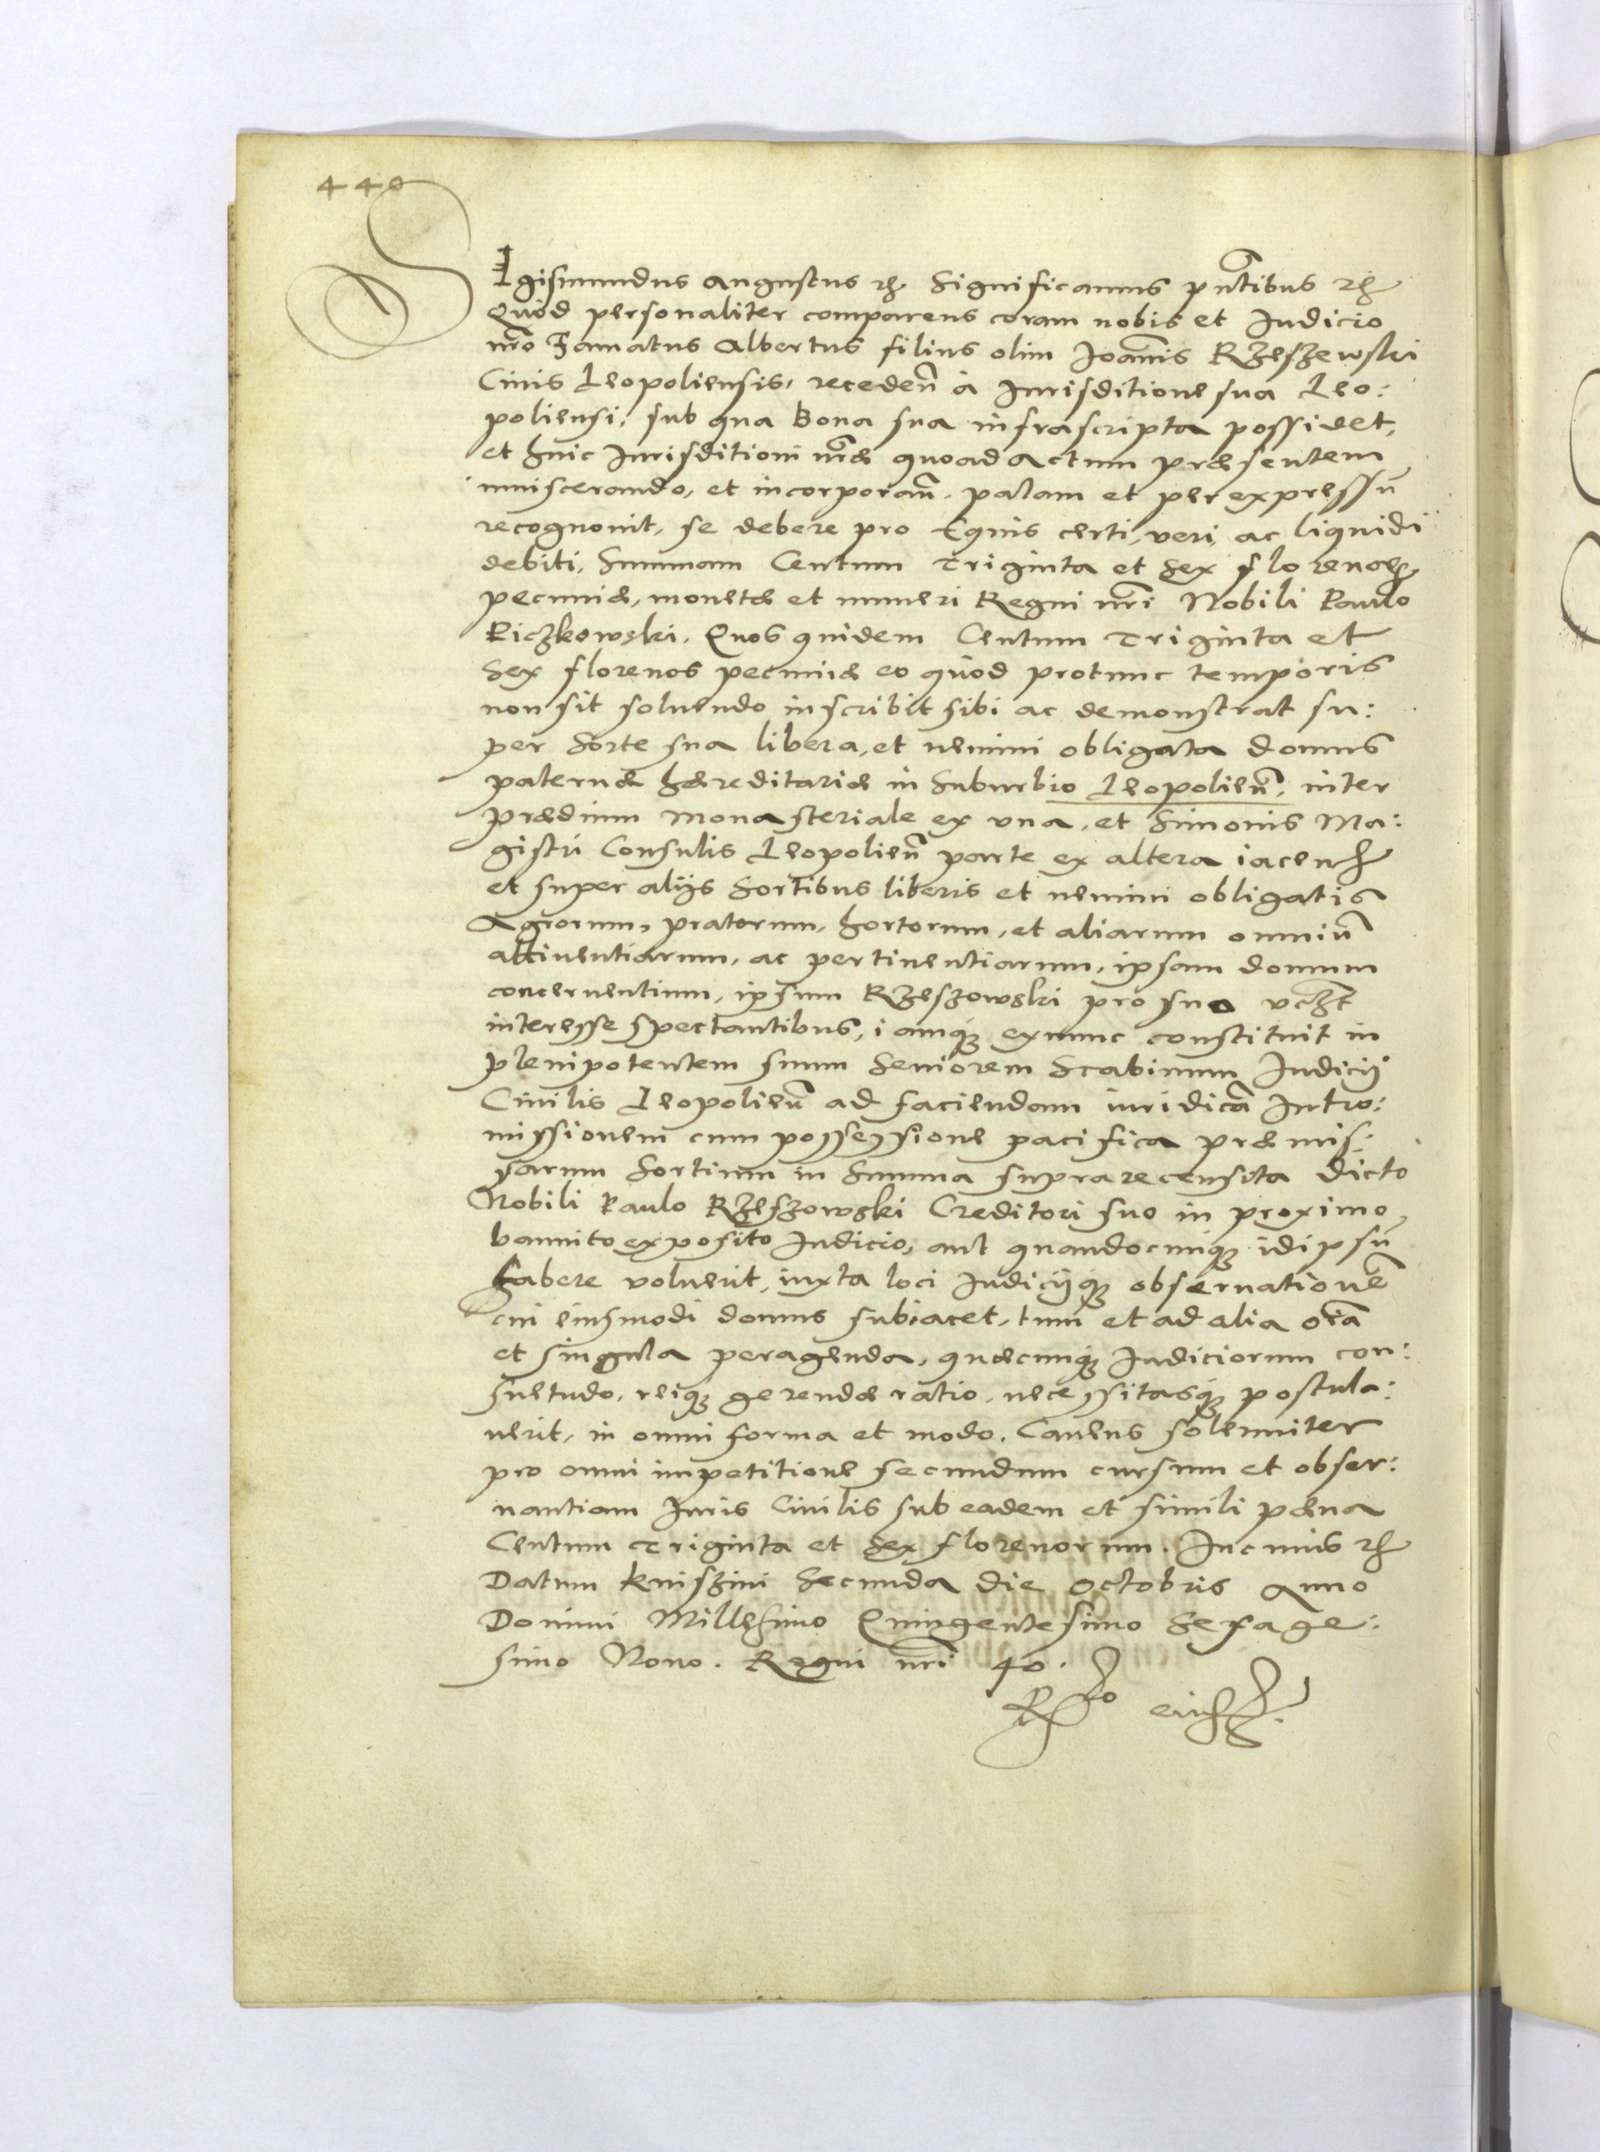 440
SIgismundus Augustus etc. Significamus pntibus etc.
Quòd personaliter comparens coram nobis et Iudicio
nro Famatus Albertus filius olim Joannis Rzeszewski
Ciuis Leopoliensis, receden à Jurisditione sua Leo:
poliensi, sub qua bona sua infrascripta possidet,
et huic Jurisditioni nræ quoad actum præsentem
inuiscerando, et incorporan, palam et per expressu
recognouit, se debere pro Equis certi, veri, ac liquidi
debiti, Summam Centum Triginta et Sex florenos
pecuniæ, monetæ et numeri Regni nri Nobili Paulo
Piczkowski. Quos quidem Centum Triginta et
Sex florenos pecuniæ eo quòd protunc temporis
non sit soluendo inscribit sibi ac demonstrat su:
per Sorte sua libera, et nemini obligata domus
paternæ hæreditariæ in Suburbio Leopolien, inter
prædium monasteriale ex vna, et Simonis Ma:
gistri Consulis Leopolien parte ex altera iacen
et super alijs Sortibus liberis et nemini obligatis
Agrorum, pratorum, hortorum, et aliarum omniu
attinentiarum, ac pertinentiarum, ipsam domum
concernentium, ipsum Rzeszowski pro suo vczt
interesse spectantibus, iamque exnunc constituit in
plenipotentem suum Seniorem Scabinum Iudicij
Ciuilis Leopolien ad faciendam iuridica Intro:
missionem cum possessione pacifica præmis:
sarum Sortium in Summa supra recensita dicto
Nobili Paulo Rzeszowski Creditori suo in proximo
bannito exposito Iudicio, aut quandocunque idipsu
habere voluerit, iuxta loci Iudicijque obseruatione
cui eiusmodi domus subiacet, tum et ad alia oia
et singula peragenda, quæcunque Iudiciorum con:
suetudo, reique gerendæ ratio, necessitasque postula:
uerit, in omni forma et modo. Cauens solenniter
pro omni impetitione secundum cursum et obser:
uantiam Juris Ciuilis sub eadem et simili pæna
Centum Triginta et Sex florenorum. In cuius etc.
Datum Kniszini Secunda die Octobris Anno
Domini Millesimo Quingentesimo Sexage:
simo Nono. Regni nri 40.